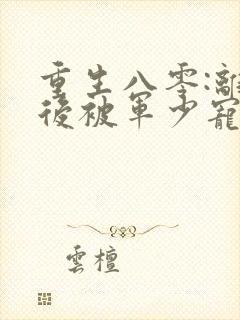 重生八零:離
後被軍少寵
雲檀